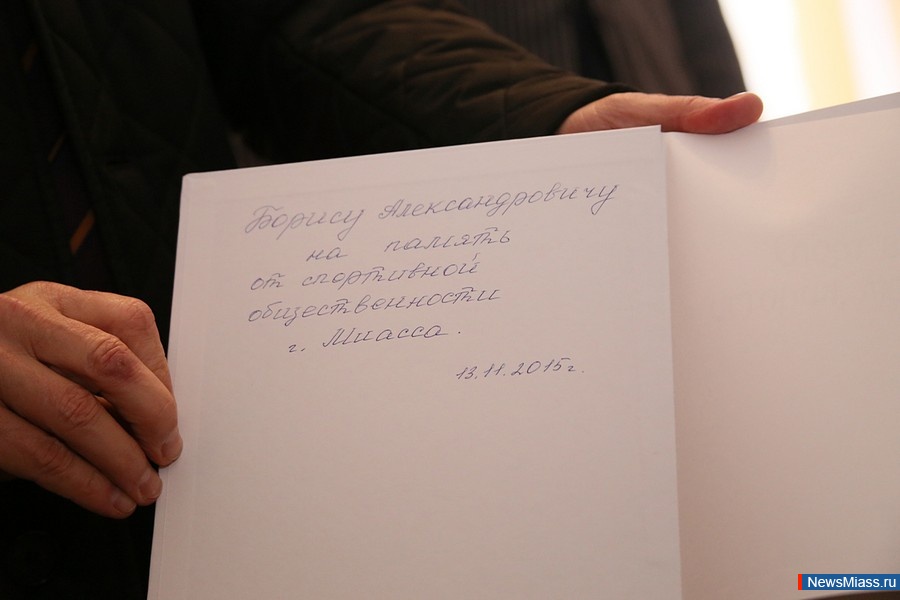 Борису Александровичу
на память
от спортивной
общественности
г. Миасса.
13.11.2015г.
NewsMiass.ru